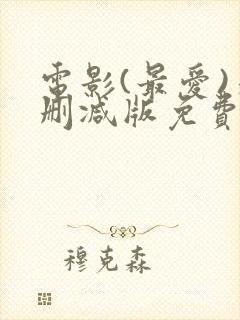 電影(最愛)
刪減版免費
穆克森